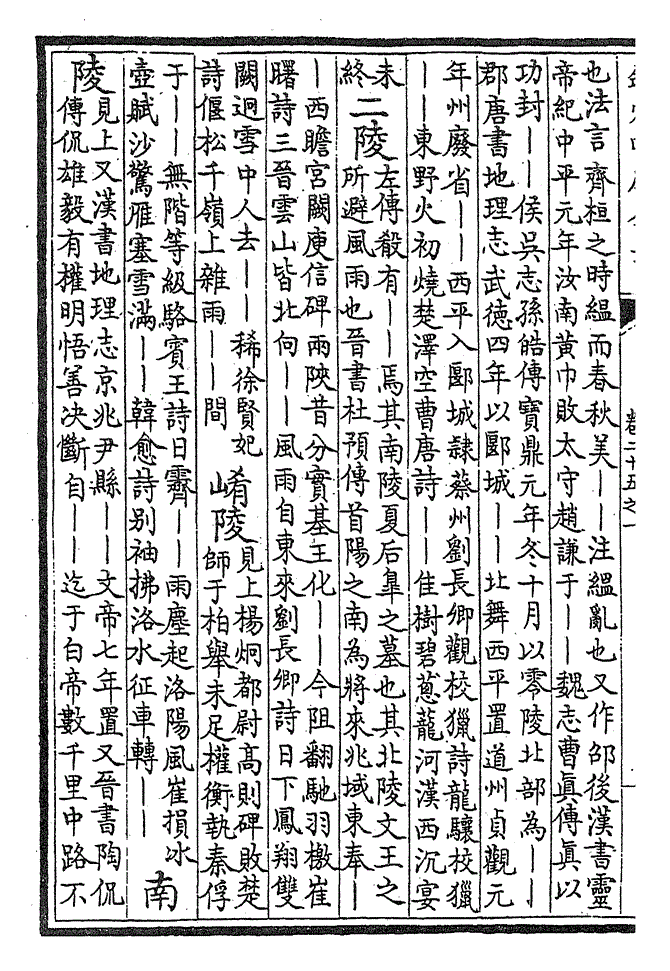 卷二十五之一
也法言齊桓之時緼而春秋美——注緼亂也又作邵後漢書靈
帝紀中平元年汝南黃巾敗太守趙謙于——魏志曹眞傳眞以
功封——侯吳志孫皓傳寶鼎元年冬十月以零陵北部為——
郡唐書地理志武德四年以郾城——北舞西平置道州貞觀元
年州廢省——西平入郾城隸蔡州劉長卿觀校獵詩龍驤校獵
——東野火初燒楚澤空曹唐詩——佳樹碧蔥蘢河漢西沉宴
未
終
二陵
左傳殽有——焉其南陵夏后皐之墓也其北陵文王之
所避風雨也晉書杜預傳首陽之南為將來兆域東奉—
—西瞻宮闕庾信碑兩陜昔分實基王化——今阻翻馳羽檄崔
曙詩三晉雲山皆北向——風雨自東來劉長卿詩日下鳳翔雙
闕迥雪中人去——稀徐賢妃
詩偃松千嶺上雜雨——間
崤陵
見上楊炯都尉高則碑敗楚
師于柏舉未足權衡執秦俘
于——無階等級駱賓王詩日霽——雨塵起洛陽風崔損冰
壺賦沙驚雁塞雪滿——韓愈詩别袖拂洛水征車轉——
南
陵
見上又漢書地理志京兆尹縣——文帝七年置又晉書陶侃
傳侃雄毅有權明悟善決斷自——迄于白帝數千里中路不